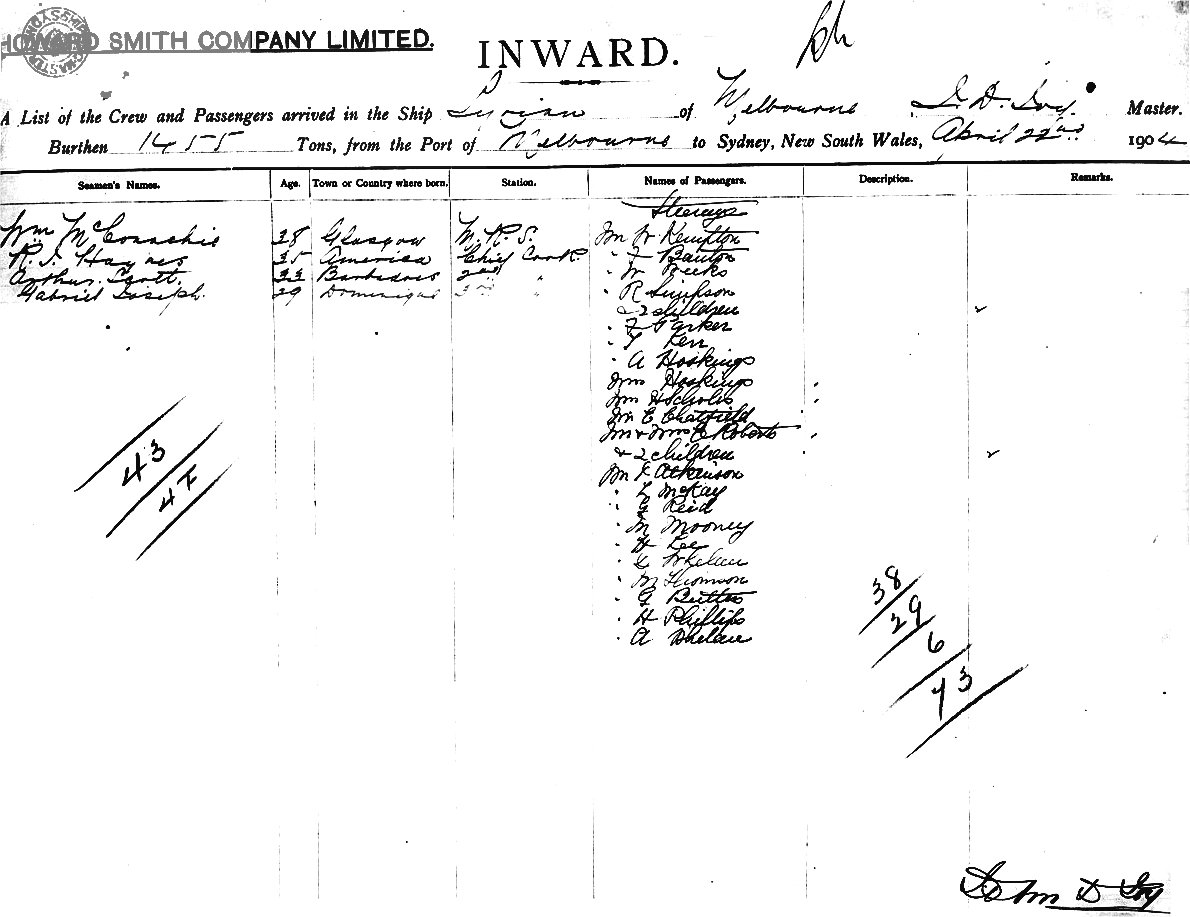 HOWARD SMITH COMPANY LIMITED.
INWARD.
A List of the Crew and Passengers arrived in the Ship Syrian of Melbourne J. D. Ivy. Master.
Burthen 1455 Tons, from the Port of Melbourne to Sydney, New South Wales, April 22nd 1904
Seamen's Names. Age. Town or Country where born. Station. Names of Passengers. Description. Remarks.
Steerage
Wm McConachie 38 Glasgow M.R.S. Mr W Kempton
R. J. Haynes 35 America Chief Cook " F Banton
Arthur Scott. 33 Barbadoes 2nd " " W Beeks
Gabriel Joseph. 29 Dominique 3rd " " R Simpson
& 2 children
" F Parker
" T Kerr
" A Hoskings
Mrs Hoskings
Mrs H Scholes
Mr E Chatfield
Mr & Mrs E Roberts
& 2 children
Mr F Atkinson
" L McKay
" G Reid
" M Mooney
" H Lee
" Whelan
" M Thomson
" G Butters
" H Phillips
" A Whelan
43
47
38
29
6
73
John D Ivy